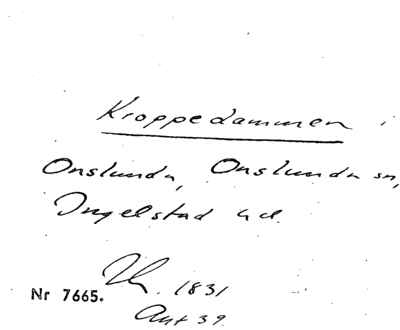 Kroppedammen i
Onslunda, Onslunda sn,
Ingelstad hd.
1831
Nr 7665.
39